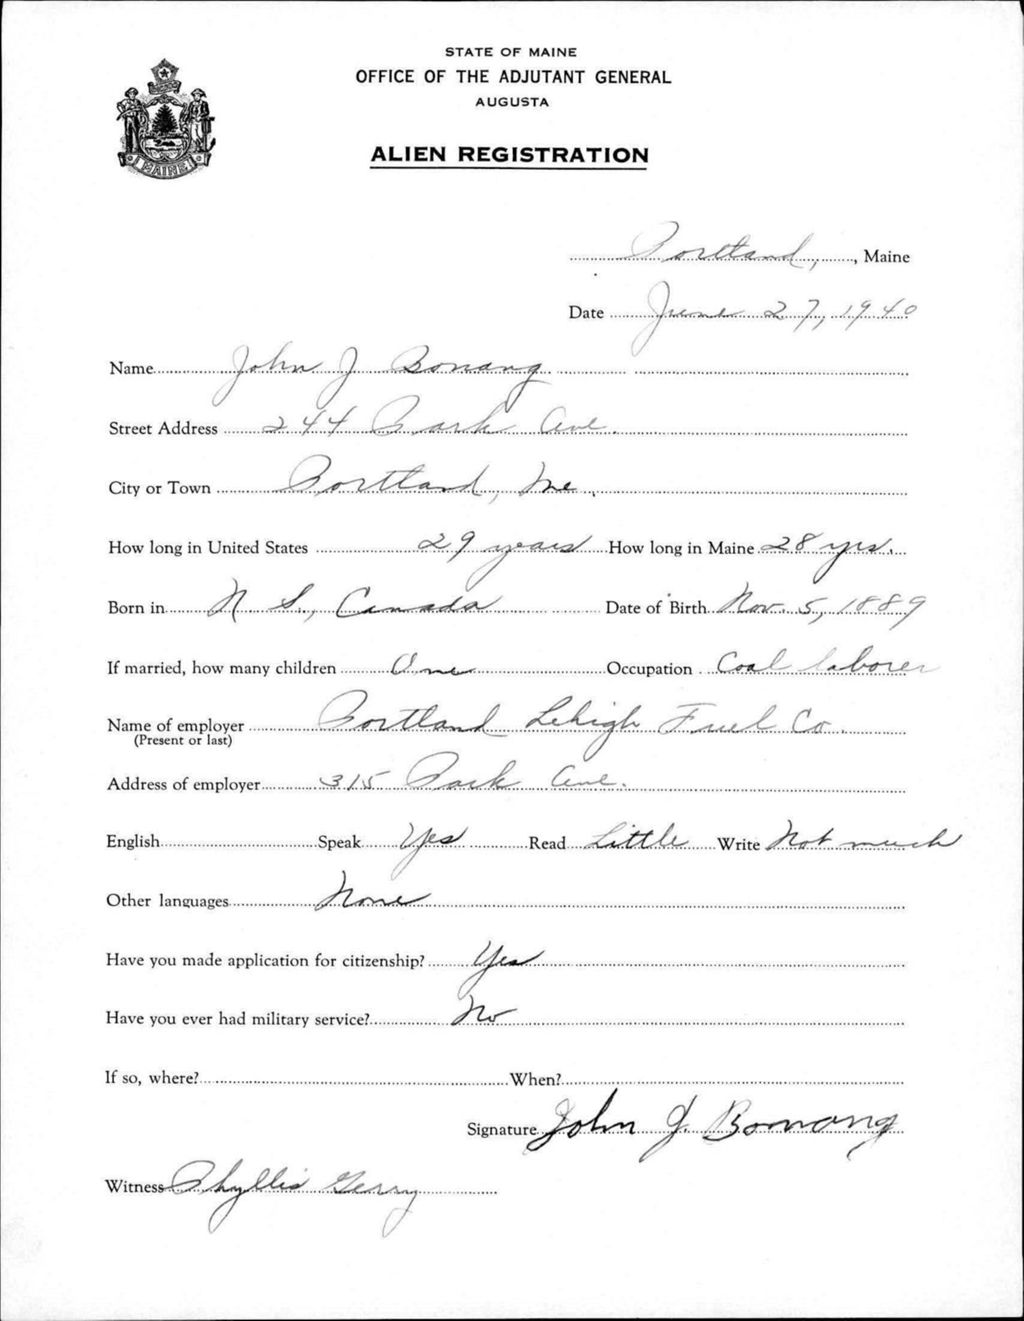 STATE OF MAINE
OFFICE OF THE ADJUTANT GENERAL
AUGUSTA
ALIEN REGISTRATION
MAINE
Portland, , Maine
Date June 27, 1940
Name John J Bonang
Street Address 244 Park Ave.
City or Town Portland, Me.
How long in United States 29 years How long in Maine 28 yrs.
Born in N S., Canada Date of Birth Nov. 5, 1889
If married, how many children One Occupation Coal laborer
Name of employer Portland Lehigh Fuel Co.
(Present or last)
Address of employer 315 Park Ave.
English Speak Yes Read Little Write Not much
Other languages None
Have you made application for citizenship? Yes
Have you ever had military service? No
If so, where? When?
Signature John J. Bonang
Witness Phyllis Gerry